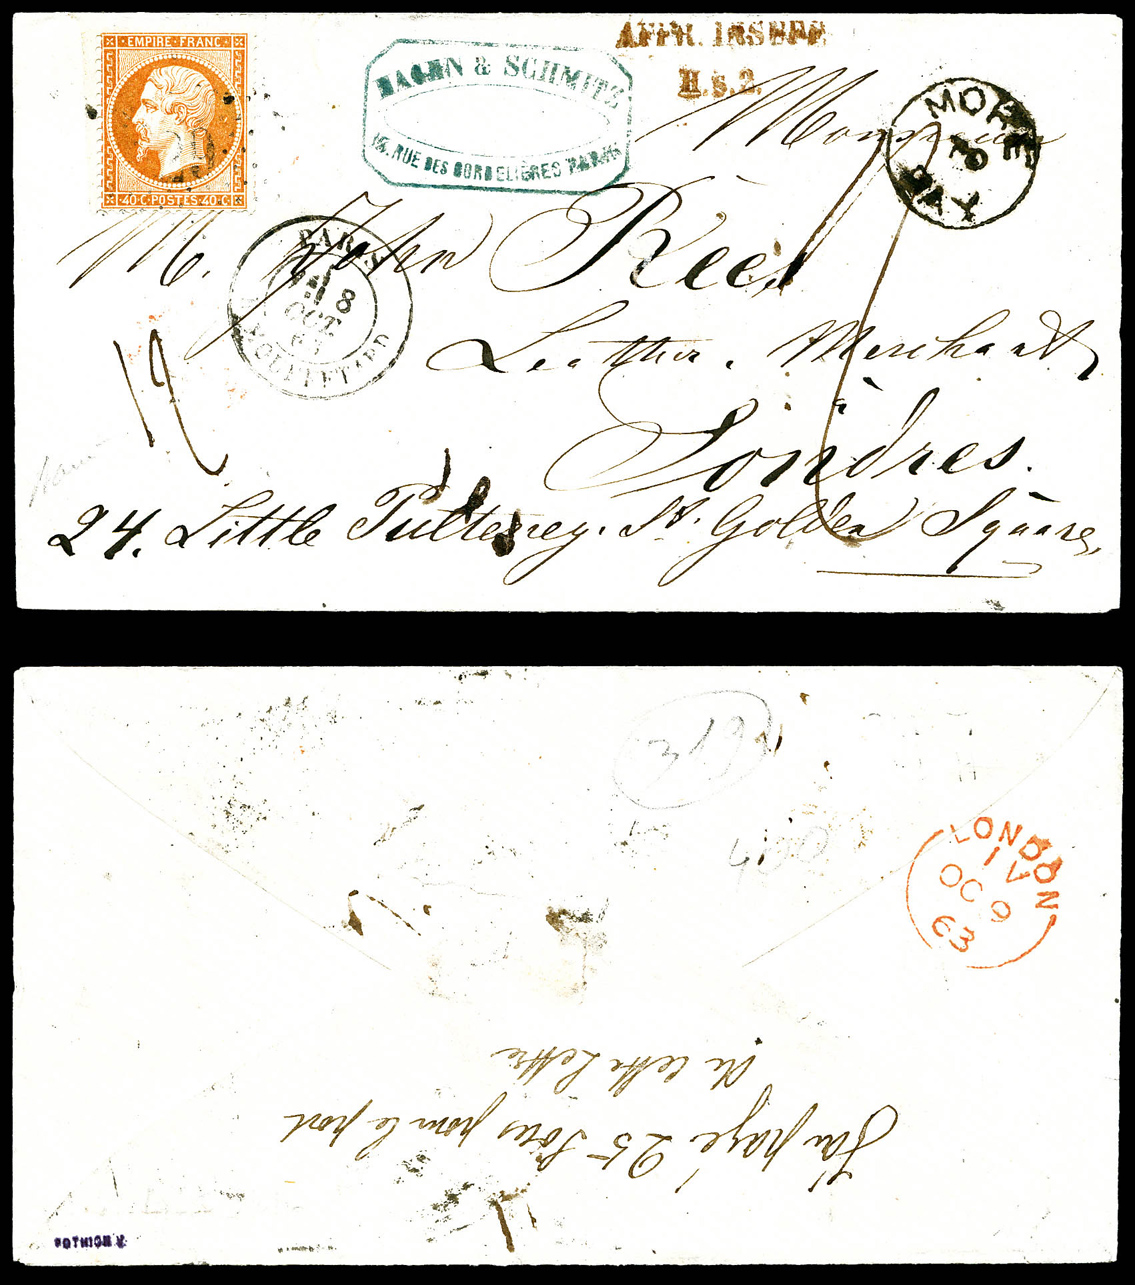 EMPIRE FRANC
40 C POSTES 40 C
HAGEN & SCHMITZ
15, RUE DES CORDELIÈRES PARIS
AFFR. INSUFF.
II.s.2.
MORE TO PAY
Monsieur
M. John Rees
PARIS
8
OCT.
63
R. MOUFFETARD
Leather Merchant
à
Londres.
12
24. Little Pulteney. St. Golden Square,
319
400
LONDON
1 V
OC 9
63
J'ai payé 25 Sous pour le port
de cette Lettre
POTHION